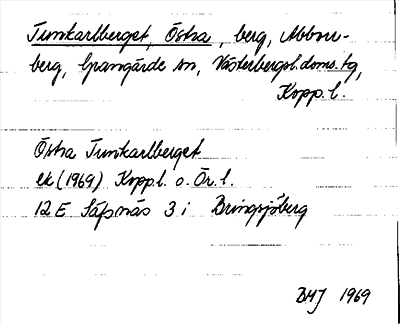 Tunkarlberget, Östra, berg, Abborr-
berg, Grangärde sn, Västerbergsl. doms. tg,
Kopp. l.
Östra Tunkarlberget
ek (1969) Kopp.l. o. Ör. l.
12 E Säfsnäs 3 i Bringsjöberg
BHJ 1969